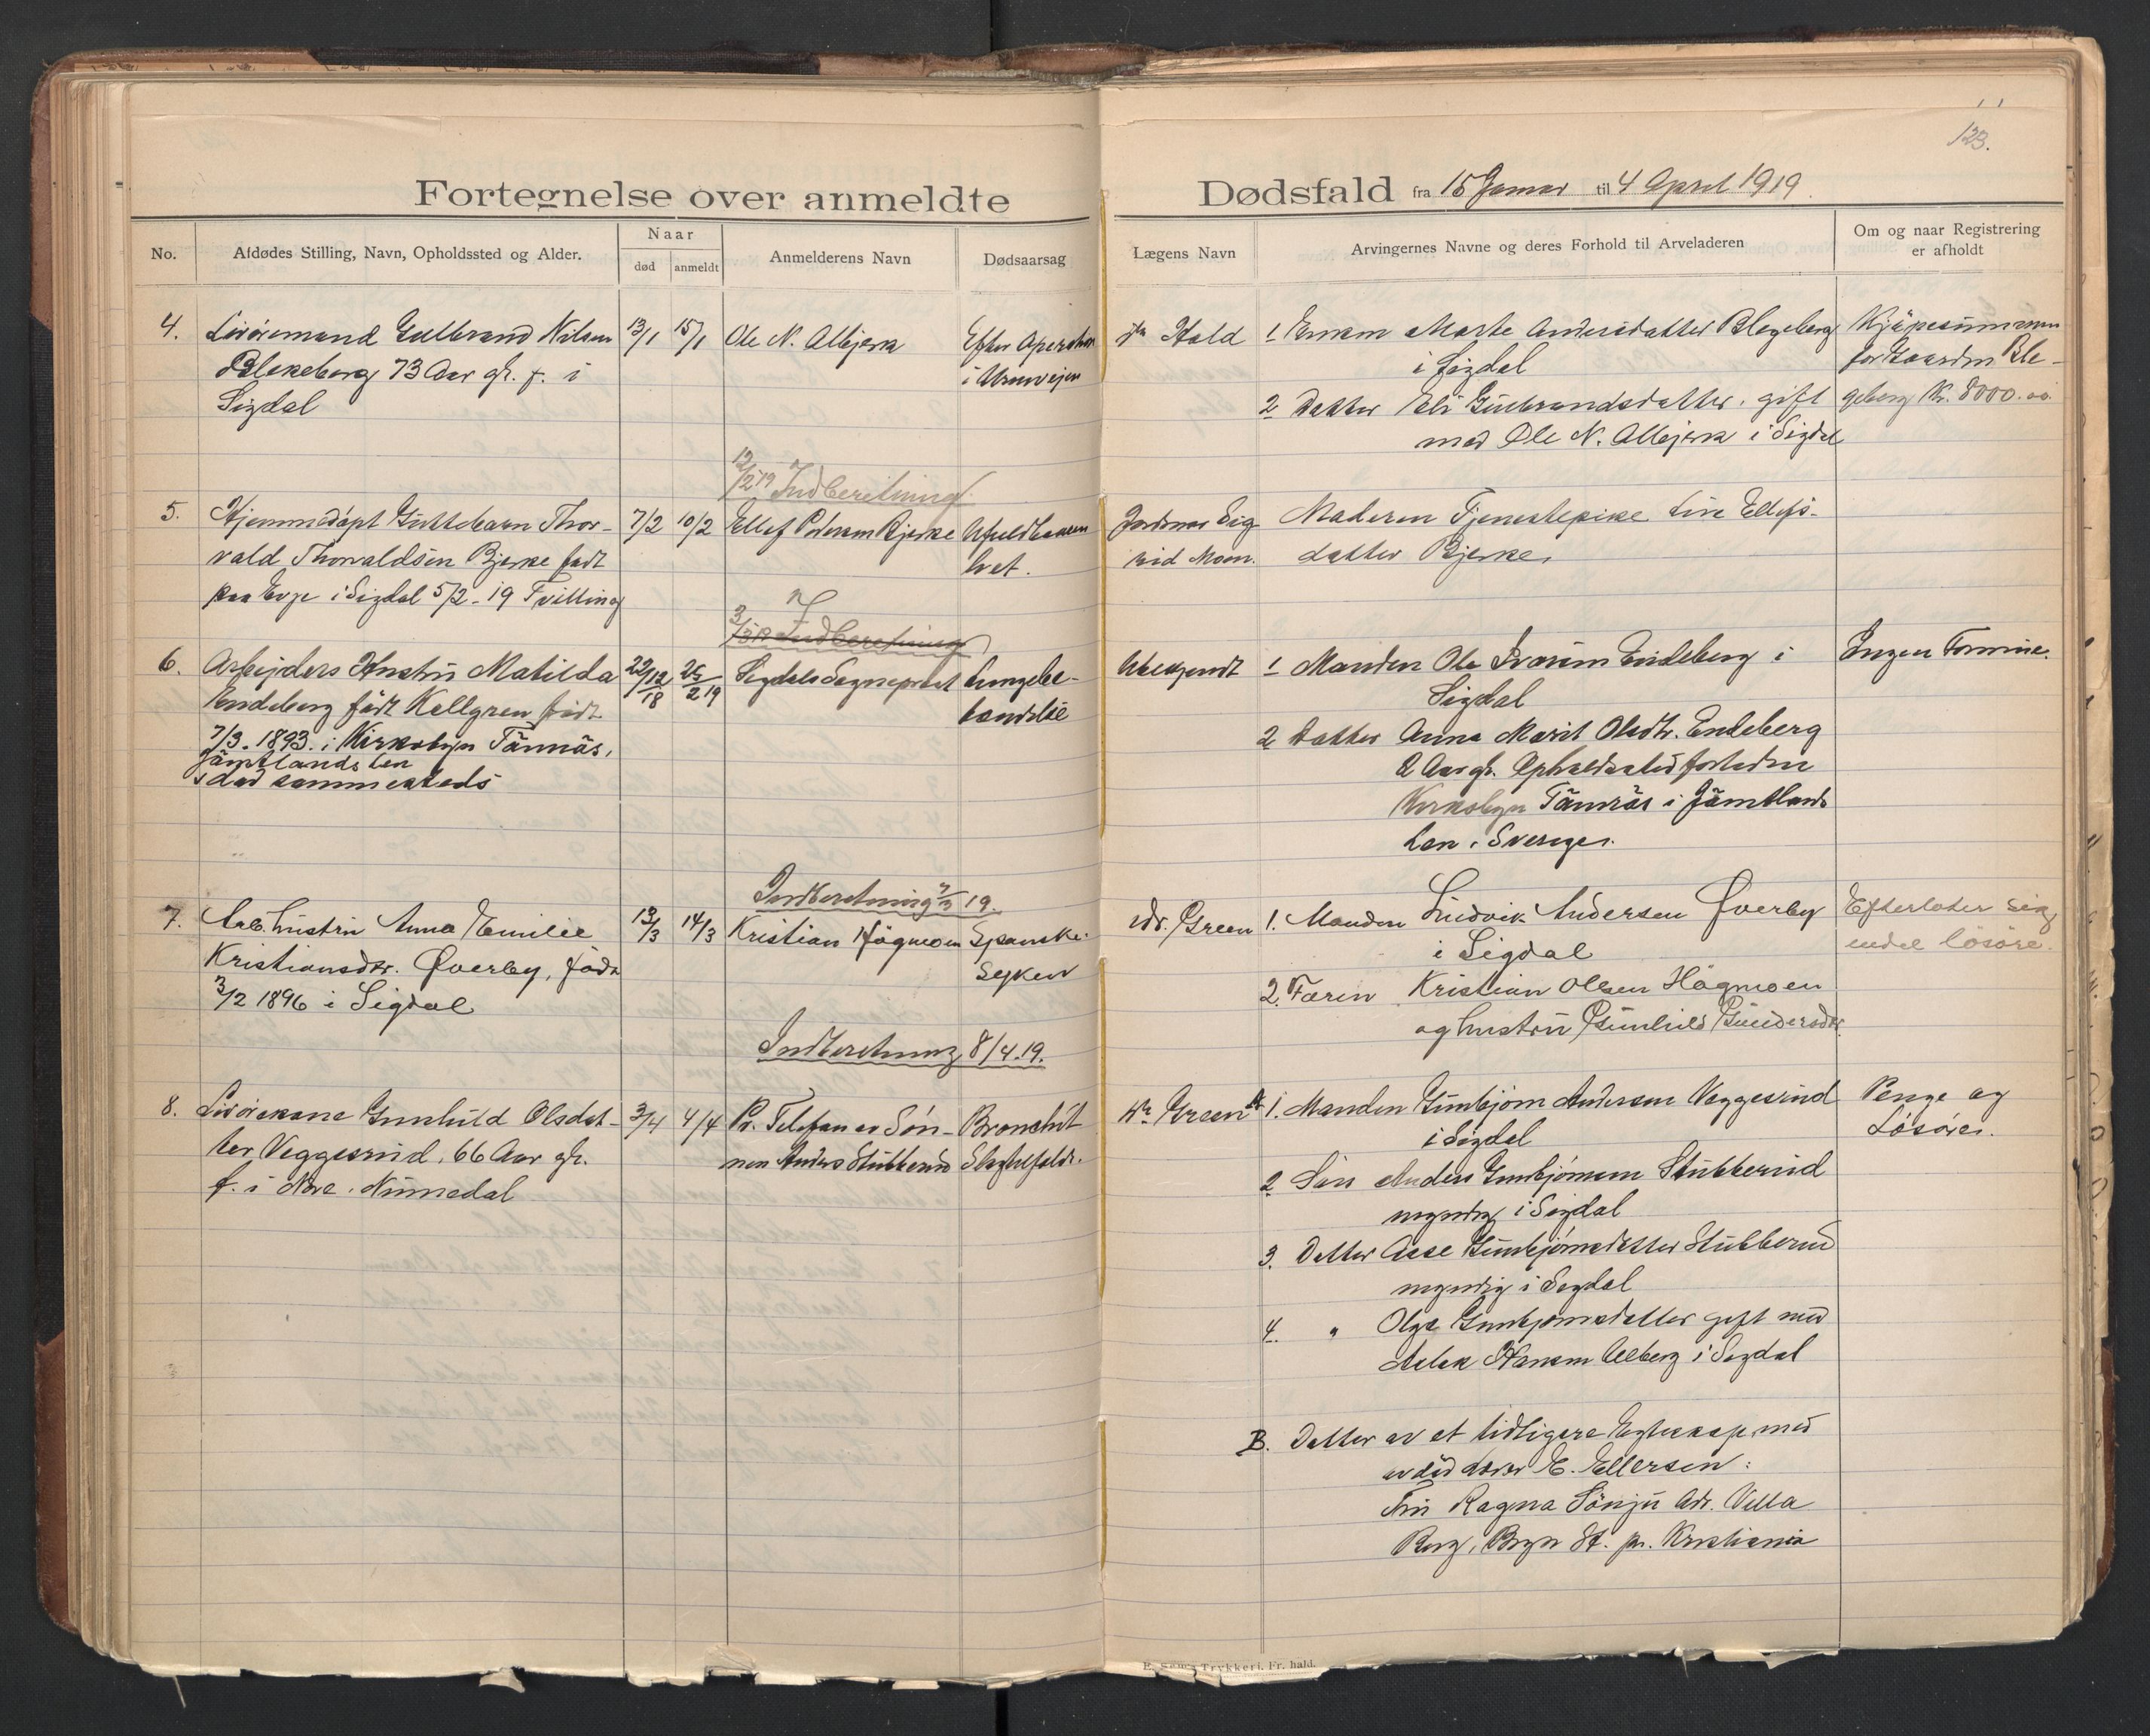 123.
Fortegnelse over anmeldte Dødsfald fra 15 Januar til 4 April 1919.
No.
Afdødes Stilling, Navn, Opholdssted og Alder.
Naar
død
anmeldt
Anmelderens Navn
Dødsaarsag
Lægens Navn
Arvingernes Navne og deres Forhold til Arveladeren
Om og naar Registrering
er afholdt
4.
Livøremand Gulbrand Nilsen
Blekeberg 73 Aar gl. f. i
Sigdal
13/1
15/1
Ole N. Albjerk
Efter Operation
i Urinveien
Dr Hald
1 Enken Marte Andersdatter Blegeberg
i Sigdal
2 Datter Eli Gulbrandsdatter, gift
med Ole N. Albjerk i Sigdal
Kjøpesummen
for Gaarden Ble-
geberg Kr. 8000.00.
12/2 19 Indberetning
5.
Hjemmedøpt Guttebarn Thor-
vald Thorvaldsen Bjerke født
paa Evje i Sigdal 5/2-19 Tvilling
7/2
10/2
Ellef Pedersen Bjerke
Ufuldbaaren
het.
Jordmor Sig
rid Moen.
Moderen Tjenestepike Live Ellefs-
datter Bjerke.
3/3 19 Indberetning
6.
Arbeiders Hustru Matilda
Endeberg født Kellgren født
7/3. 1893. i Kirkobyn Tännäs,
Jämtlands Len
død sammesteds
22/12 18
25/2 19
Sigdals Sogneprest
Lungebe-
tændelse
Ubekjendt
1 Manden Ole Iversen Endeberg i
Sigdal
2 Datter Anna Marit Olsdtr. Endeberg
2 Aar gl. Opholdssted fortiden
Kirkobyn Tännäs i Jämtlands
Len i Sverige.
Ingen Formue.
Indberetning 7/3 19.
7.
Arb. hustru Anna Emilie
Kristiansdtr. Øverby, född
3/2 1896 i Sigdal
13/3
14/3
Kristian Högmoen
Spanske-
syken
Dr. Green
1. Manden Ludvik Andersen Øverby
i Sigdal
2. Faren Kristian Olsen Högmoen
og hustru Gunhild Gundersdtr.
Efterlater sig
endel lösöre.
Indberetning 8/4.19.
8.
Livørekone Gunhild Olsdat-
ter Veggesrud, 66 Aar gl.
f. i Nore, Numedal
3/4
4/4
Pr. Telefon av Søn-
nen Anders Stubberud
Bronchit
Slagtilfælde.
Dr Green
A 1. Manden Gunbjørn Andersen Veggesrud
i Sigdal
2 Søn Anders Gunbjørnsen Stubberud
myndig i Sigdal
3. Datter Aase Gunbjørnsdatter Stubberud
myndig i Sigdal
4. " Olga Gunbjørnsdatter gift med
Aslak Hansen Ulberg i Sigdal
B. Datter av et tidligere Egteskap med
avdød Lærer E. Ellersen:
Fru Ragna Sönju Adr. Villa
Berg, Bryn St. pr. Kristiania
Penge og
Løsøre.
E. Sem's Trykkeri, Fr. hald.